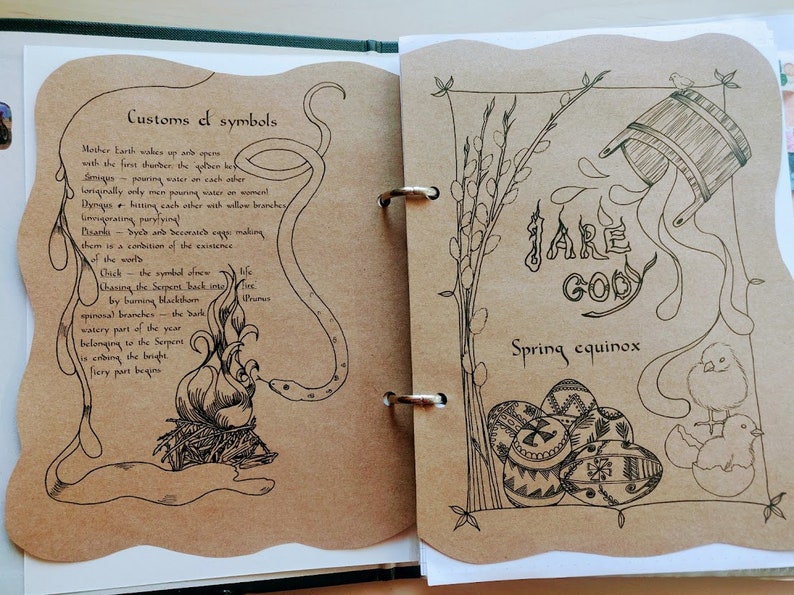 Customs & symbols
Mother Earth wakes up and opens
with the first thunder, the golden key
Śmigus – pouring water on each other
(originally only men pouring water on women)
Dyngus – hitting each other with willow branches
(invigorating, puryfying)
Pisanki – dyed and decorated eggs; making
them is a condition of the existence
of the world
Chick – the symbol of new life
Chasing the Serpent back into fire
by burning blackthorn (Prunus
spinosa) branches – the dark,
watery part of the year
belonging to the Serpent
is ending the bright,
fiery part begins
JARE
GODY
Spring equinox